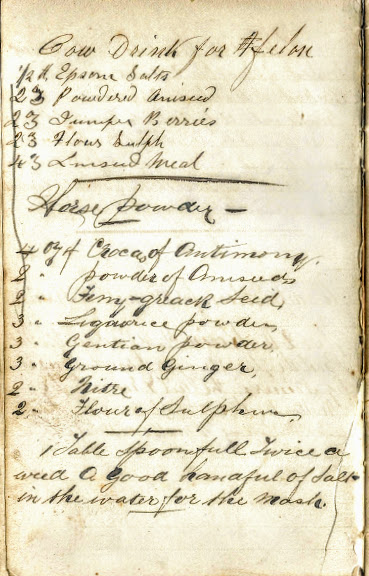 Cow Drink for Felon
1/2 lb Epsome Salts
2 ʒ Powdered Aniseed
2 ʒ Juniper Berries
2 ʒ Flour Sulph
4 ʒ Linseed Meal
Horse powder —
4 oz of Crocas of Antimony.
2 " powder of Aniseeds
2 " Feny-greack Seid,
3 " Liqaurice powder,
3 " Gentian powder,
3 " Ground Ginger,
2 " Nitre
2 " Flour of Sulpher,
1 Table Spoonfull Twice a
weed A good handful of Salt
in the water for the Mash.